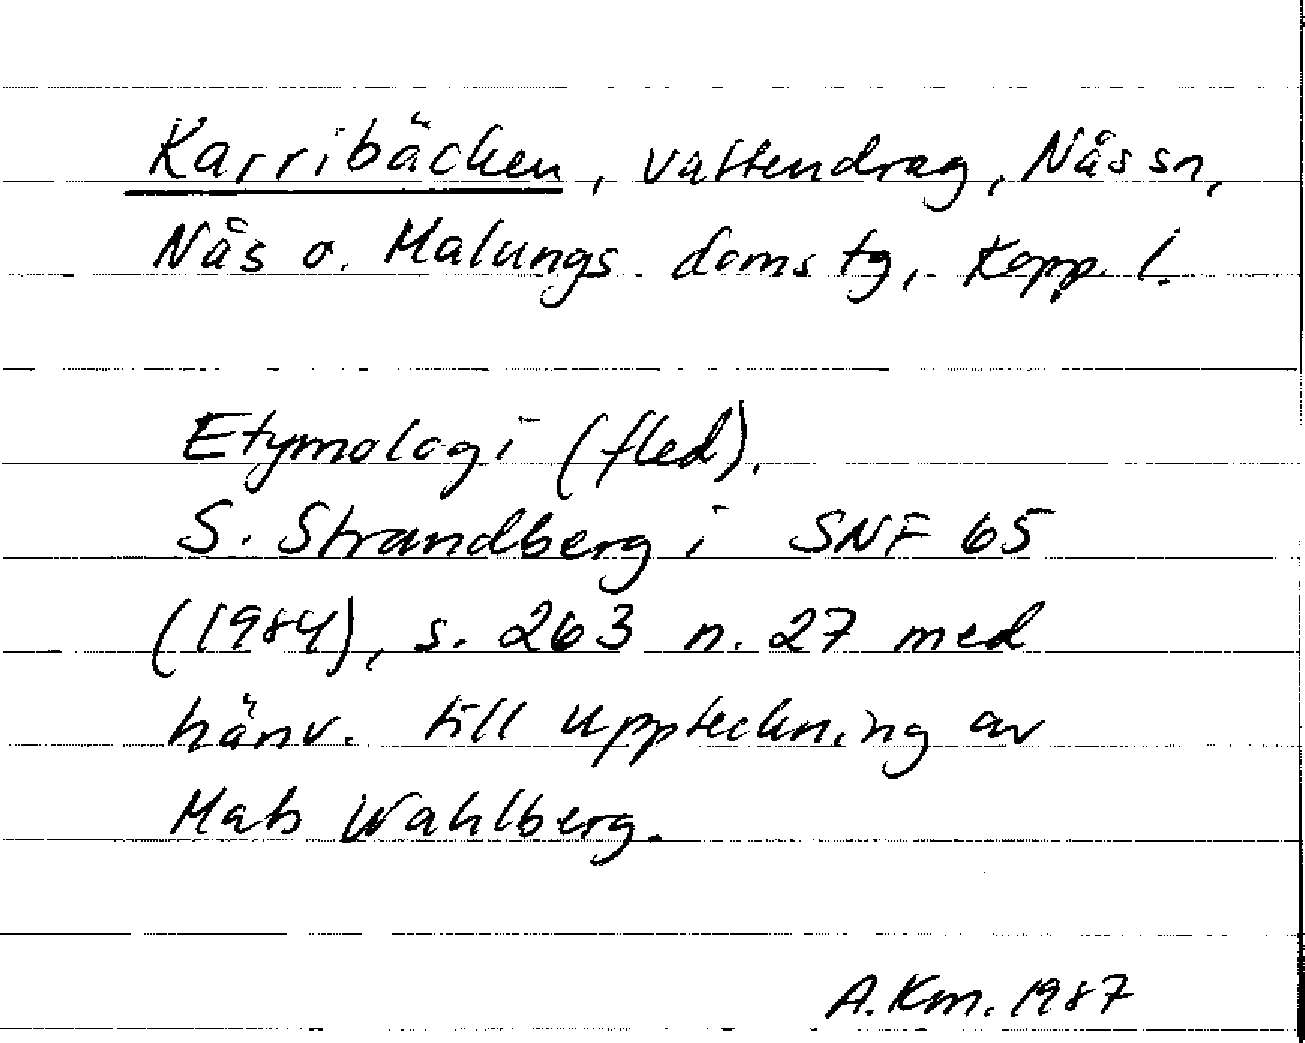 Karribäcken, vattendrag, Nås sn,
Nås o. Malungs doms tg, Kopp. l.
Etymologi (fled).
S. Strandberg i SNF 65
(1984), s. 263 n. 27 med
hänv. till uppteckning av
Mats Wahlberg.
A.Km. 1987